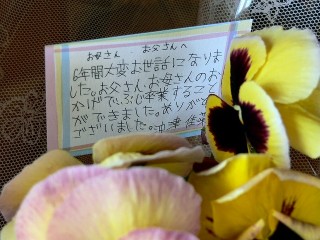 お母さん　お父さんへ
6年間大変お世話になりま
した。お父さんお母さんのお
かげでぶじ卒業すること
ができました。ありがとう
ございました。